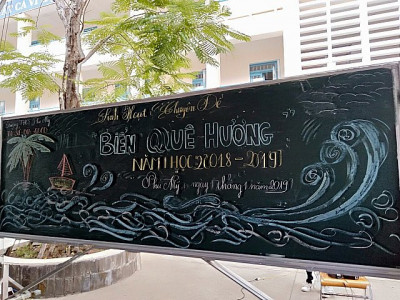 Sinh Hoạt Chuyên Đề
BIỂN QUÊ HƯƠNG
NĂM HỌC 2018 - 2019
Phú Mỹ, ngày 1 tháng 1 năm 2019